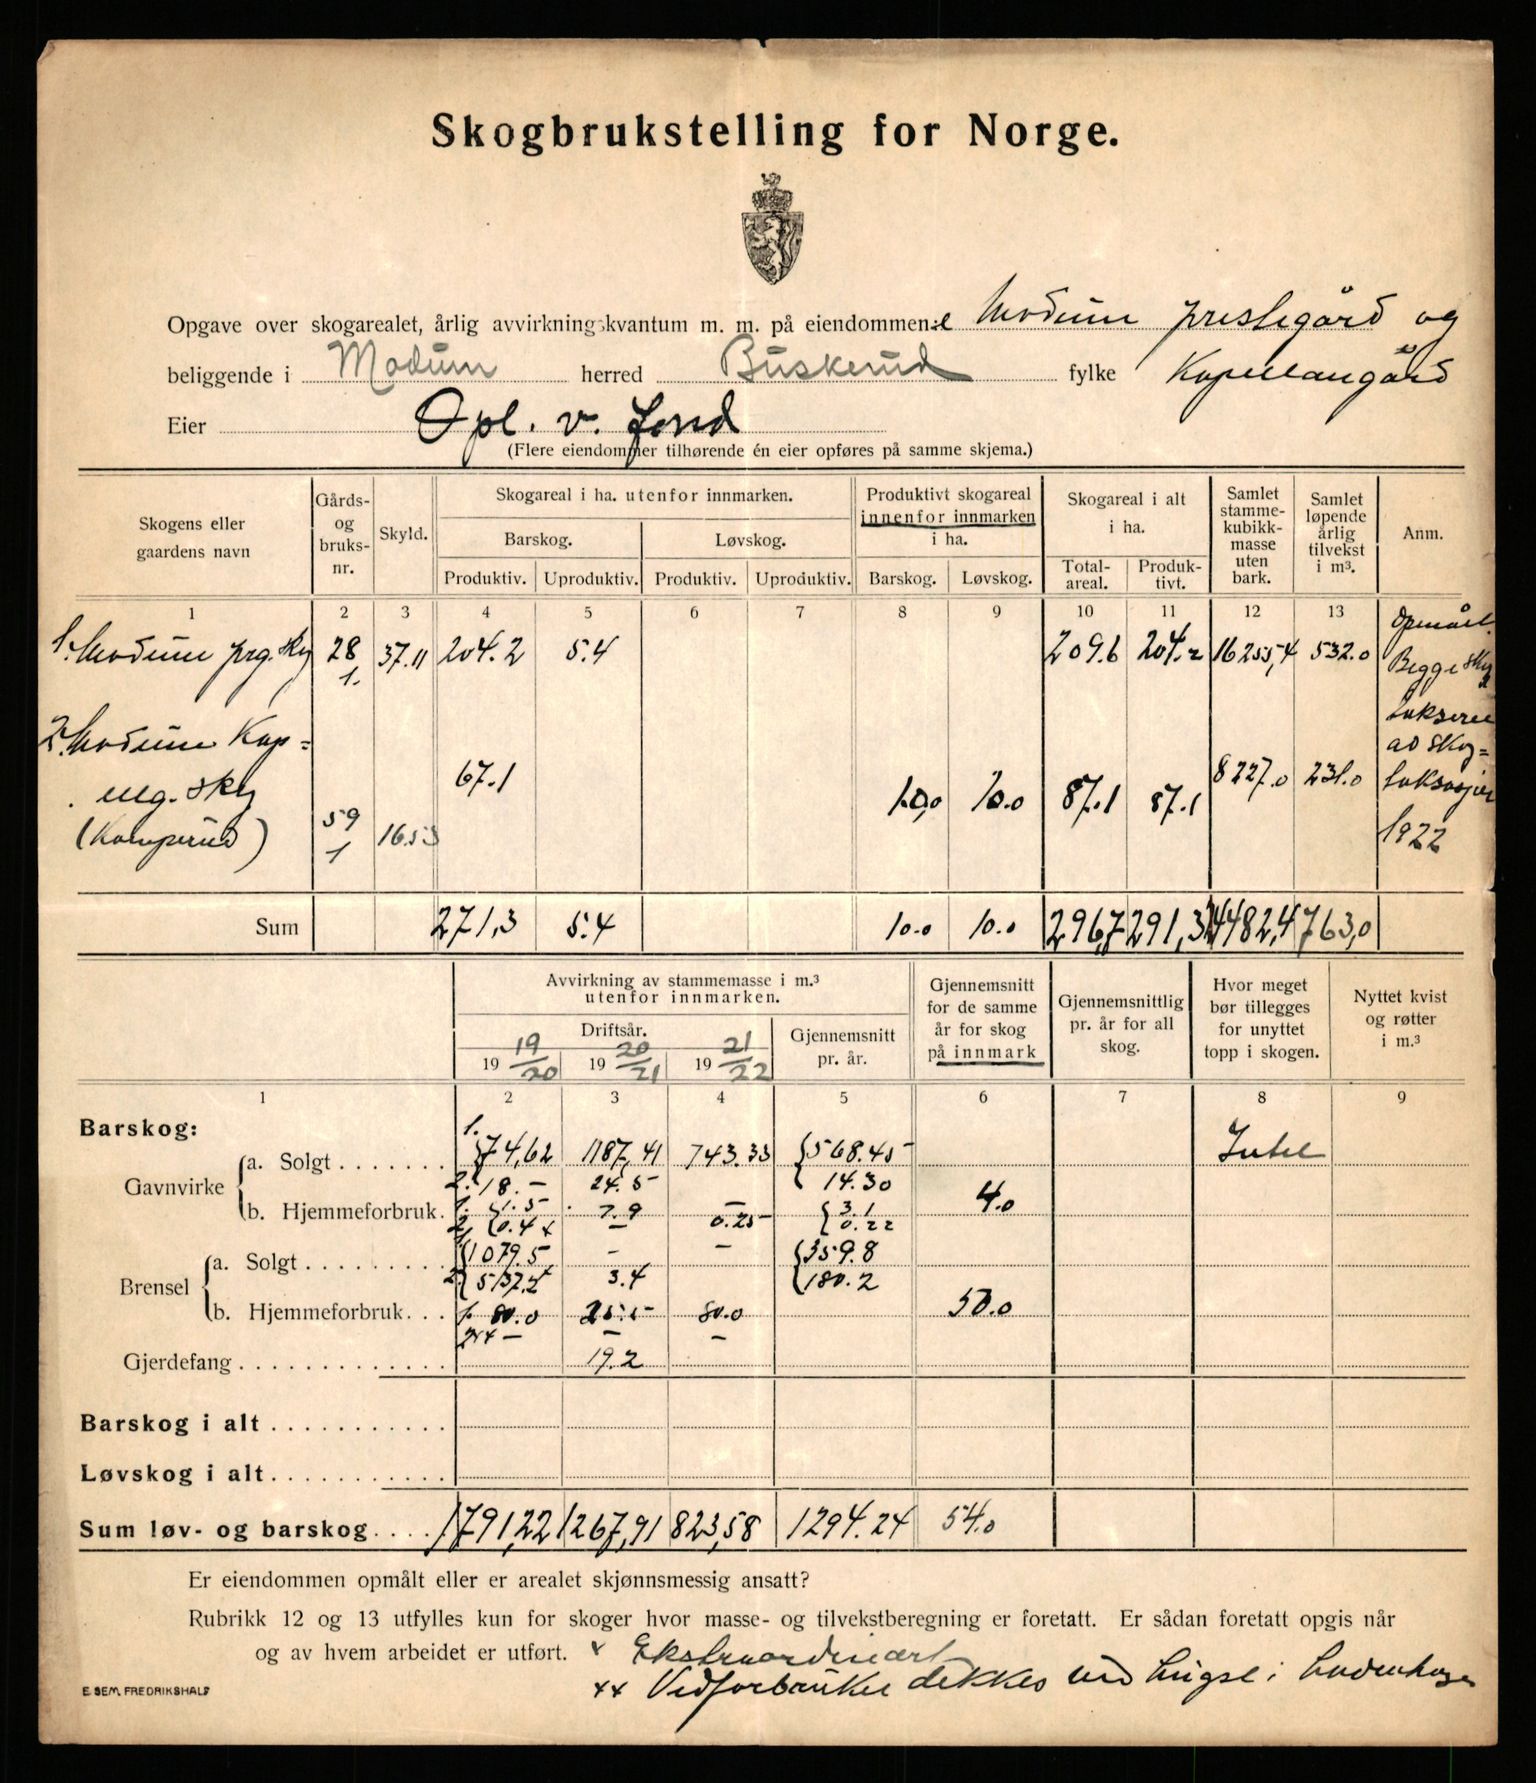 Skogbrukstelling for Norge.
Opgave over skogarealet, årlig avvirkningskvantum m. m. på eiendommene Modum prestegård og
beliggende i Modum herred Buskerud fylke Kapellangård
Eier Opl. v. fond
(Flere eiendommer tilhørende én eier opføres på samme skjema.)
Skogens eller gaardens navn
Gårds- og bruks- nr.
Skyld.
Skogareal i ha. utenfor innmarken.
Barskog.
Løvskog.
Produktiv. Uproduktiv. Produktiv. Uproduktiv.
Produktivt skogareal innenfor innmarken i ha.
Barskog. Løvskog.
Skogareal i alt i ha.
Total- areal. Produk- tivt.
Samlet stamme- kubikk- masse uten bark.
Samlet løpende årlig tilvekst i m³.
Anm.
1 2 3 4 5 6 7 8 9 10 11 12 13
1. Modum prg. skg 28 1. 37.11 204.2 5.4 209.6 204.2 16255,4 532.0
2. Modum Kap=
ellg. skg 67.1 10,0 10.0 87.1 87.1 8227.0 231.0
(Kamperud) 59 1 16.53
Opmålt.
Begge skg
takseret
av skog=
taksasjon
1922
Sum 271,3 5.4 10.0 10.0 296,7 291,3 24482,4 763,0
Avvirkning av stammemasse i m.³
utenfor innmarken.
Driftsår.
19 19/20 19 20/21 19 21/22
Gjennemsnitt pr. år.
Gjennemsnitt for de samme år for skog på innmark
Gjennemsnittlig pr. år for all skog.
Hvor meget bør tillegges for unyttet topp i skogen.
Nyttet kvist og røtter i m.³
1 2 3 4 5 6 7 8 9
Barskog:
Gavnvirke
a. Solgt 1. 74,62 1187,41 743.33 568.45 Intet
2. 18.– 24.5 14.30
b. Hjemmeforbruk. 1. 1.5 7.9 – 3.1 4.0
2. 0.4 x – 0.25 0.22
Brensel
a. Solgt 1079.5 – – 359.8
2. 537.2 x 3.4 180.2
b. Hjemmeforbruk. 1. 80.0 80.0 50.0
xx – – –
Gjerdefang 19.2
Barskog i alt
Løvskog i alt
Sum løv- og barskog 1791,22 1267,91 823,58 1294.24 54.0
Er eiendommen opmålt eller er arealet skjønnsmessig ansatt?
Rubrikk 12 og 13 utfylles kun for skoger hvor masse- og tilvekstberegning er foretatt. Er sådan foretatt opgis når
og av hvem arbeidet er utført. x Ekstraordinært
xx Vedforbruket dekkes ved hugst i
E. SEM. FREDRIKSHALD